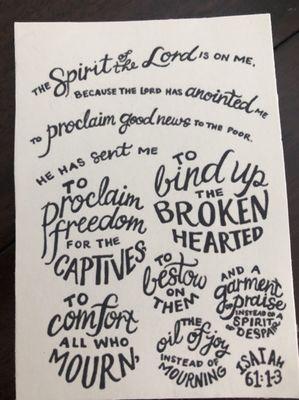 THE Spirit of the Lord IS ON ME,
BECAUSE THE LORD HAS anointed ME
TO proclaim good news TO THE POOR.
HE HAS sent ME
TO bind up
THE
BROKEN
HEARTED
TO
proclaim
freedom
FOR THE
CAPTIVES
TO
comfort
ALL WHO
MOURN,
TO
bestow
ON
THEM
AND A
garment
of praise
INSTEAD OF A
SPIRIT of
DESPAIR
THE
oil of joy
INSTEAD OF
MOURNING
ISAIAH
61:1-3